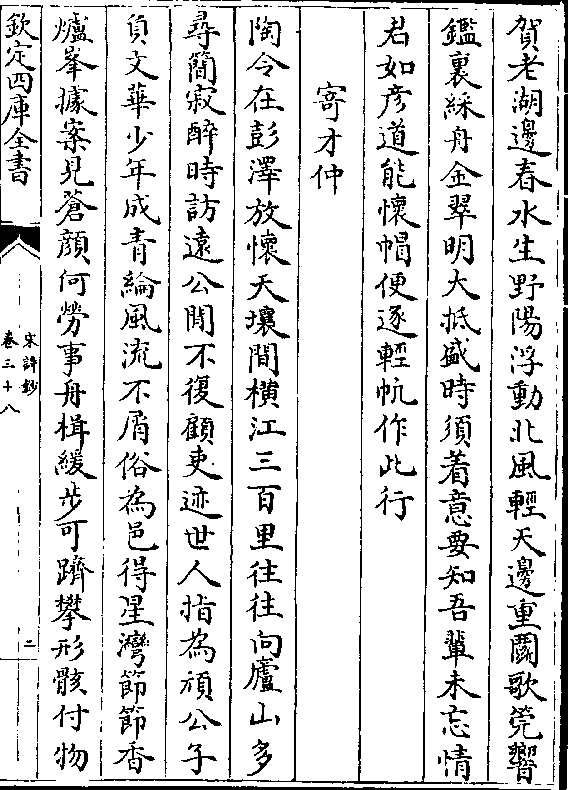 賀老湖邊春水生野陽浮動北風輕天邊重閣歌筦響
鑑裏綵舟金翠明大抵盛時須着意要知吾輩未忘情
君如彦道能懷帽便逐輕帆作此行
寄才仲
陶令在彭澤放懷天壤間横江三百里往往向廬山多
尋簡寂醉時訪遠公閒不復顧吏迹世人指為頑公子
負文華少年成青綸風流不屑俗為邑得星灣節節香
爐峯據案見蒼顔何勞事舟楫緩步可躋攀形骸付物
欽定四庫全書
宋詩鈔
卷三十八
二